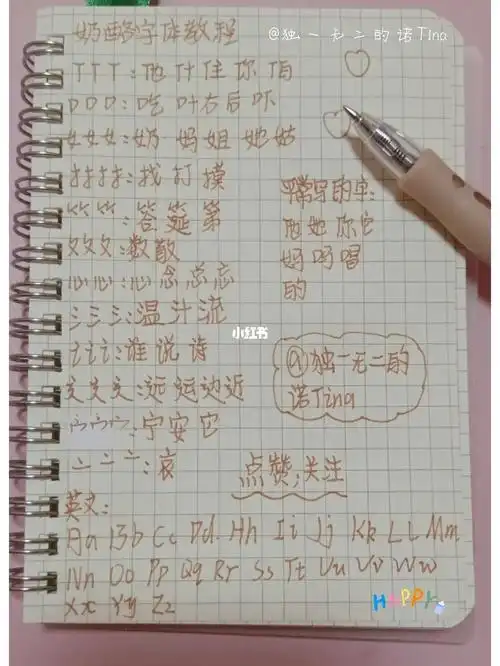 奶酪字体教程
@独一无二的诺Tina
亻亻亻:他什住你伯
口口口:吃叶右后吓
女女女:奶妈姐她姑
扌扌扌扌:找打摸
⺮⺮:答筵第
攵攵攵:数散
心心:心念总忘
氵氵氵:温汁流
讠讠讠:谁说诗
辶辶辶:远运边近
宀宀:宁安它
亠亠亠:哀
平常写的字:
他她你它
妈吗唱
的
小红书
@独一无二的
诺Tina
点赞,关注
英文:
Aa Bb Cc Dd Hh Ii Jj Kk Ll Mm
Nn Oo Pp Qq Rr Ss Tt Uu Vv Ww
Xx Yy Zz
HAPPY